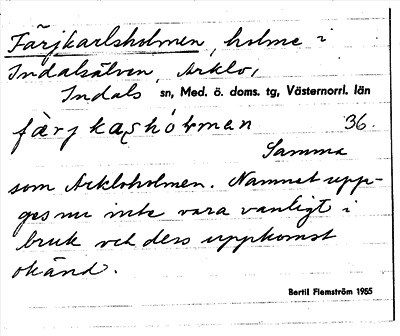 Färjkarlsholmen, holme i
Indalsälven, Arklo,
Indals sn, Med. ö. doms. tg, Västernorrl. län
färjkaʂhólman 36.
Samma
som Arkloholmen. Namnet upp-
ges nu inte vara vanligt i
bruk och dess uppkomst
okänd.
Bertil Flemström 1955